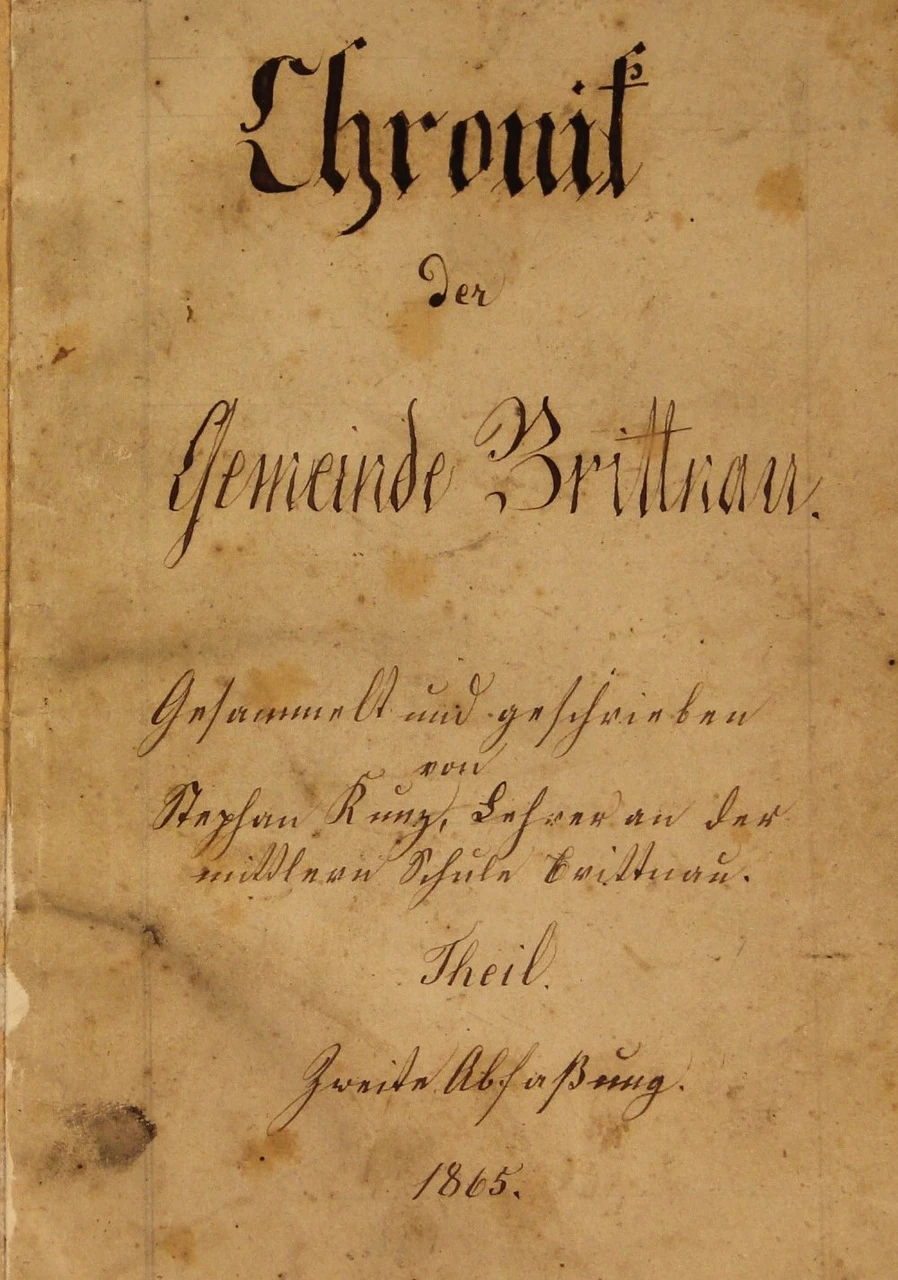 Chronik
der
Gemeinde Brittnau.
Gesammelt und geschrieben
von
Stephan Kunz, Lehrer an der
mittlern Schule Brittnau.
Theil.
Zweite Abfaßung.
1865.